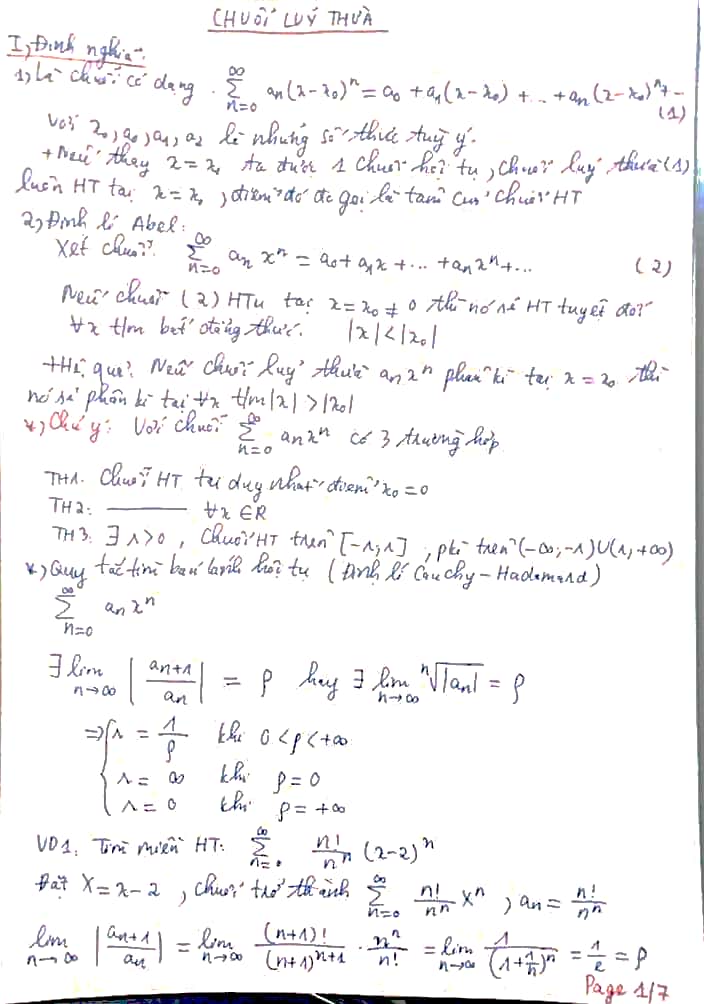 CHUỖI LUỸ THỪA
I, Định nghĩa:
1, Là chuỗi có dạng . \sum_{n=0}^{\infty} a_n(x-x_0)^n = a_0 + a_1(x-x_0) + ... + a_n(x-x_0)^n + ...
(1)
Với x_0, a_0, a_1, a_2 là những số thức tuỳ ý.
+ Nếu thay x = x_0 ta được 1 chuỗi hội tụ, chuỗi luỹ thừa (1)
luôn HT tại x = x_0, điểm đó đc gọi là tâm của chuỗi HT
2, Định lí Abel:
Xét chuỗi: \sum_{n=0}^{\infty} a_n x^n = a_0 + a_1x + ... + a_nx^n + ... (2)
Nếu chuỗi (2) HTụ tại x = x_0 ≠ 0 thì nó sẽ HT tuyệt đối
∀x t/m bất đẳng thức. |x| < |x_0|
+ Hệ quả: Nếu chuỗi luỹ thừa a_n x^n phân kì tại x = x_0 thì
nó sẽ phân kì tại ∀x t/m |x| > |x_0|
*, Chú ý: Với chuỗi \sum_{n=0}^{\infty} a_n x^n có 3 trường hợp
TH1. Chuỗi HT tại duy nhất điểm x_0 = 0
TH2: ——— ∀x ∈ R
TH3: ∃ r > 0, Chuỗi HT trên [-r, r], pkì trên (-∞, -r) ∪ (r, +∞)
*, Quy tắc tìm bán kính hội tụ (Định lí Cauchy - Hadamard)
\sum_{n=0}^{\infty} a_n x^n
∃ lim_{n→∞} |a_{n+1}/a_n| = ρ hay ∃ lim_{n→∞} \sqrt[n]{|a_n|} = ρ
⇒ { r = 1/ρ khi 0 < ρ < +∞
r = ∞ khi ρ = 0
r = 0 khi ρ = +∞
VD1: Tìm miền HT: \sum_{n=0}^{\infty} n!/n^n (x-2)^n
Đặt X = x-2, chuỗi trở thành \sum_{n=0}^{\infty} n!/n^n X^n, a_n = n!/n^n
lim_{n→∞} |a_{n+1}/a_n| = lim_{n→∞} (n+1)!/(n+1)^{n+1} · n^n/n! = lim_{n→∞} 1/(1+1/n)^n = 1/e = ρ
Page 1/7